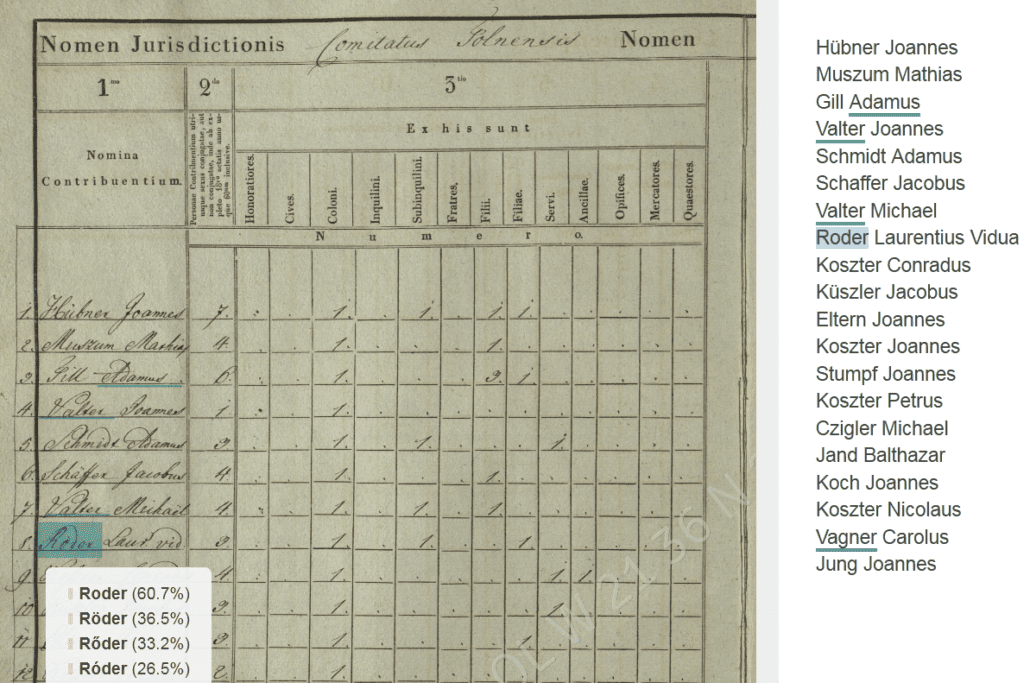 Nomen Jurisdictionis Comitatus Tolnensis Nomen
1mo 2do 3tio
Nomina Contribuentium.
Personae Contribuentium utriusque sexus conjugatae, aut non conjugatae, inde ab expleto 18vo aetatis anno usque 60mum inclusive.
Ex his sunt
Honoratiores. Cives. Coloni. Inquilini. Subinquilini. Fratres. Filii. Filiae. Servi. Ancillae. Opifices. Mercatores. Quaestores.
Numero.
1. Hübner Joannes 7. 1. 1. 1. 1.
2. Muszum Mathias 4. 1. 1.
3. Gill Adamus 6. 1. 3. 1.
4. Valter Joannes 1. 1.
5. Schmidt Adamus 3. 1. 1. 1.
6. Schäffer Jacobus 4. 1. 1.
7. Valter Michael 4. 1. 1. 1.
8. Roder Laur vid 3. 1. 1. 1.
9 4. 1. 1. 1.
10 3. 1. 1.
11 3. 1. 1.
12 2. 1.
Roder (60.7%)
Röder (36.5%)
Rőder (33.2%)
Róder (26.5%)
OL W 21 36 N
Hübner Joannes
Muszum Mathias
Gill Adamus
Valter Joannes
Schmidt Adamus
Schaffer Jacobus
Valter Michael
Roder Laurentius Vidua
Koszter Conradus
Küszler Jacobus
Eltern Joannes
Koszter Joannes
Stumpf Joannes
Koszter Petrus
Czigler Michael
Jand Balthazar
Koch Joannes
Koszter Nicolaus
Vagner Carolus
Jung Joannes